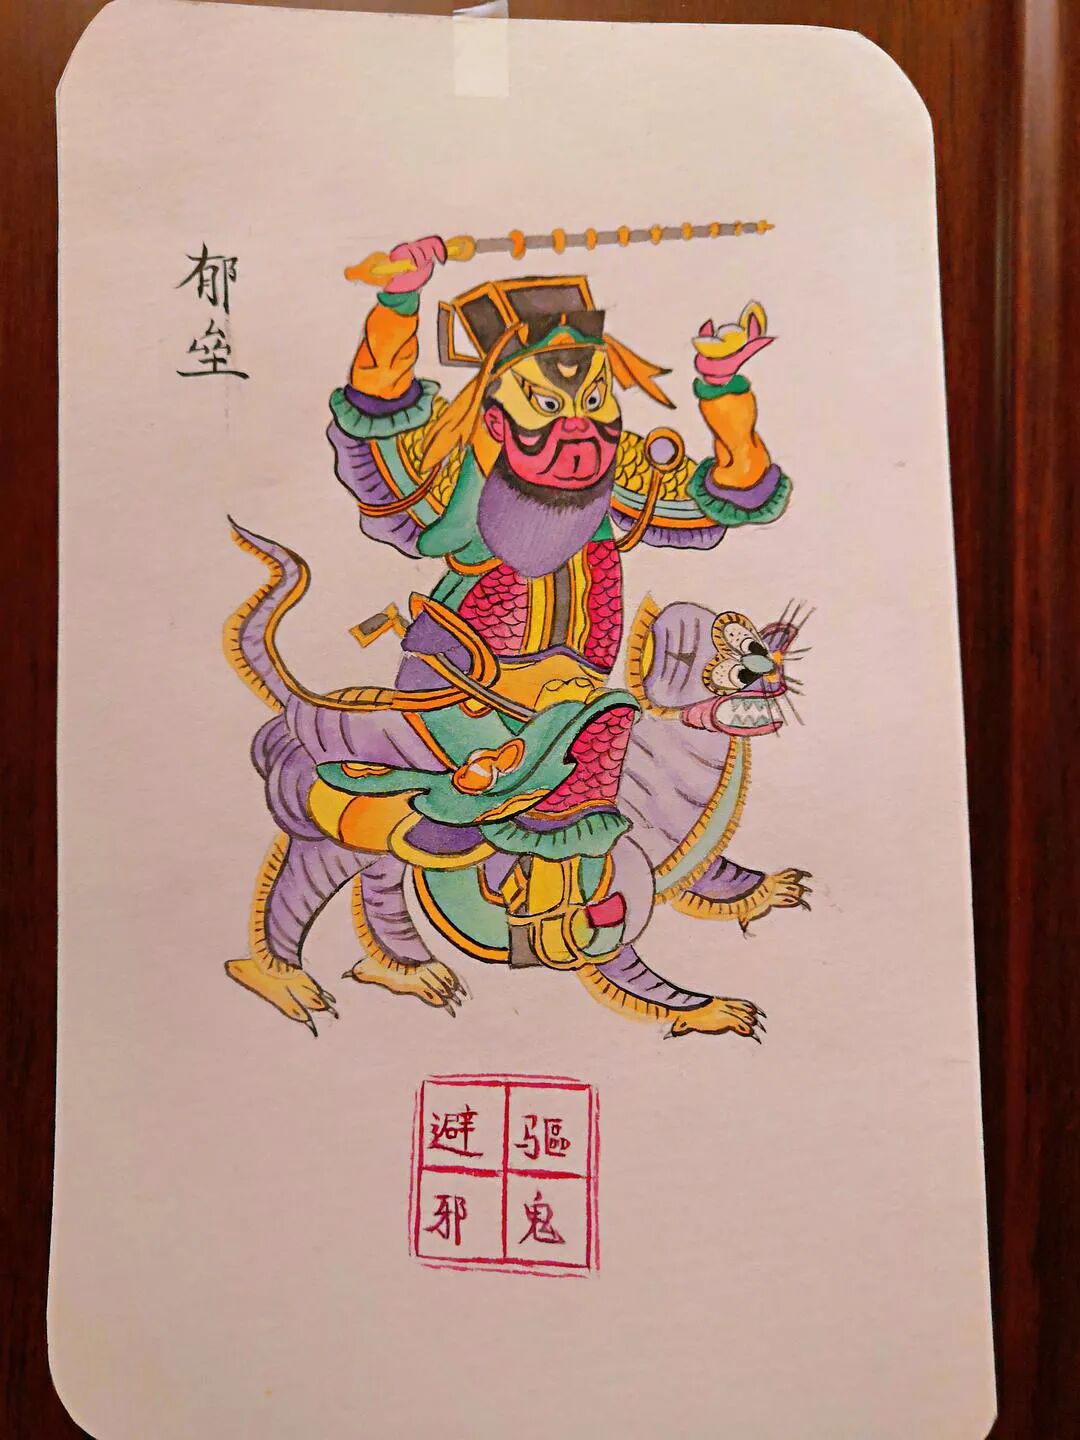 郁垒
驱鬼
避邪